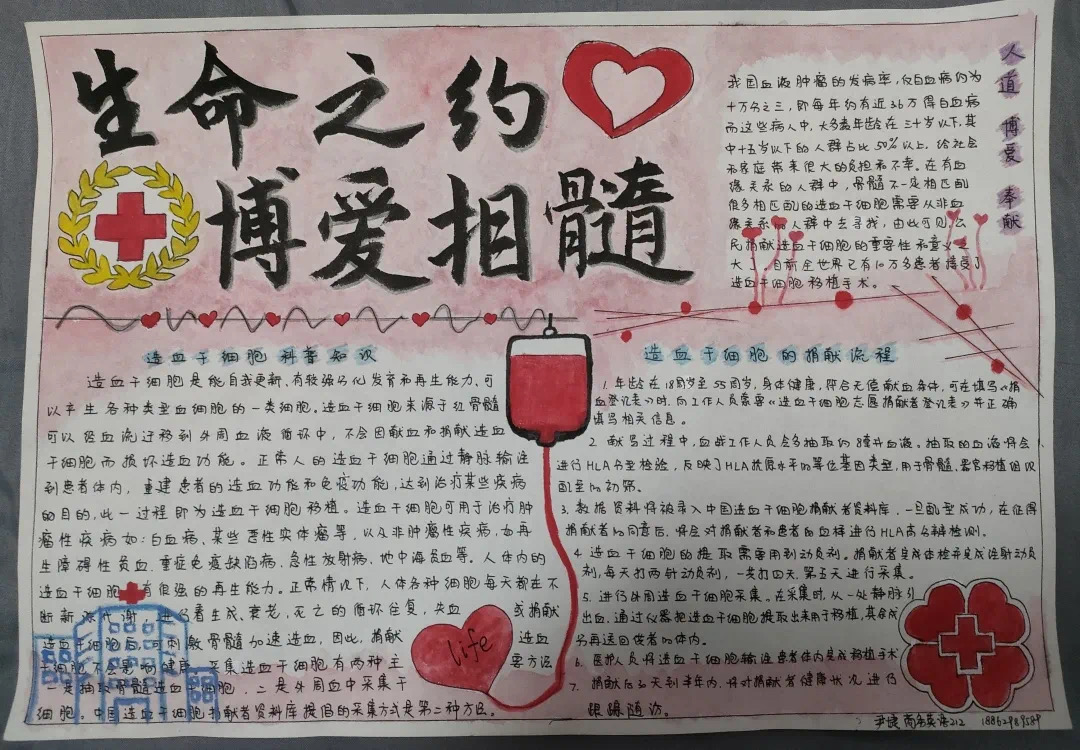 生命之约
博爱相髓
人道 博爱 奉献
我国血液肿瘤的发病率,仅白血病约为
十万分之三,即每年约有近36万得白血病
而这些病人中,大多数年龄在三十岁以下,其
中十五岁以下的人群占比50%以上,给社会
和家庭带来很大的负担和不幸。在有血
缘关系的人群中,骨髓不一定相匹配
很多相匹配的造血干细胞需要从非血
缘关系的人群中去寻找,由此可见,公
民捐献造血干细胞的重要性和意义之
大了,目前全世界已有10万多患者接受了
造血干细胞移植手术。
造血干细胞科普知识
造血干细胞是能自我更新、有较强分化发育和再生能力、可
以产生各种类型血细胞的一类细胞。造血干细胞来源于红骨髓
可以经血流迁移到外周血液循环中,不会因献血和捐献造血
干细胞而损坏造血功能。正常人的造血干细胞通过静脉输注
到患者体内,重建患者的造血功能和免疫功能,达到治疗某些疾病
的目的,此一过程即为造血干细胞移植。造血干细胞可用于治疗肿
瘤性疾病如:白血病、某些恶性实体瘤等,以及非肿瘤性疾病,如再
生障碍性贫血、重症免疫缺陷病、急性放射病、地中海贫血等。人体内的
造血干细胞有很强的再生能力。正常情况下,人体各种细胞每天都在不
断新陈代谢,进行着生成、衰老、死亡的循环往复,失血 或捐献
造血干细胞后,可刺激骨髓加速造血,因此,捐献 造血
干细胞不会影响健康。采集造血干细胞有两种主 要方法
一是抽取骨髓造血干细胞,二是外周血中采集干
细胞。中国造血干细胞捐献者资料库提倡的采集方式是第二种方法。
life
造血干细胞的捐献流程
1. 年龄在18周岁至55周岁,身体健康,符合无偿献血条件,可在填写《捐
血登记表》时,向工作人员索要《造血干细胞志愿捐献者登记表》并正确
填写相关信息。
2. 献写过程中,血站工作人员会多抽取约8毫升血液。抽取的血液将会
进行HLA分型检验,反映了HLA抗原水平的等位基因类型,用于骨髓、器官移植组织
配型的初筛。
3. 数据资料将被录入中国造血干细胞捐献者资料库,一旦配型成功,在征得
捐献者的同意后,将会对捐献者和患者的血样进行HLA高分辨检测。
4. 造血干细胞的提取需要用到动员剂。捐献者完成体检并完成注射动员
剂,每天打两针动员剂,一共打四天,第五天进行采集。
5. 进行外周造血干细胞采集。在采集时,从一处静脉引
出血,通过仪器把造血干细胞提取出来用于移植,其余成
分再送回供者的体内。
6. 医护人员将造血干细胞输注患者体内完成移植手术
7. 捐献后30天到半年内,将对捐献者健康状况进行
跟踪随访。
尹婕 商务英语212 18862989589